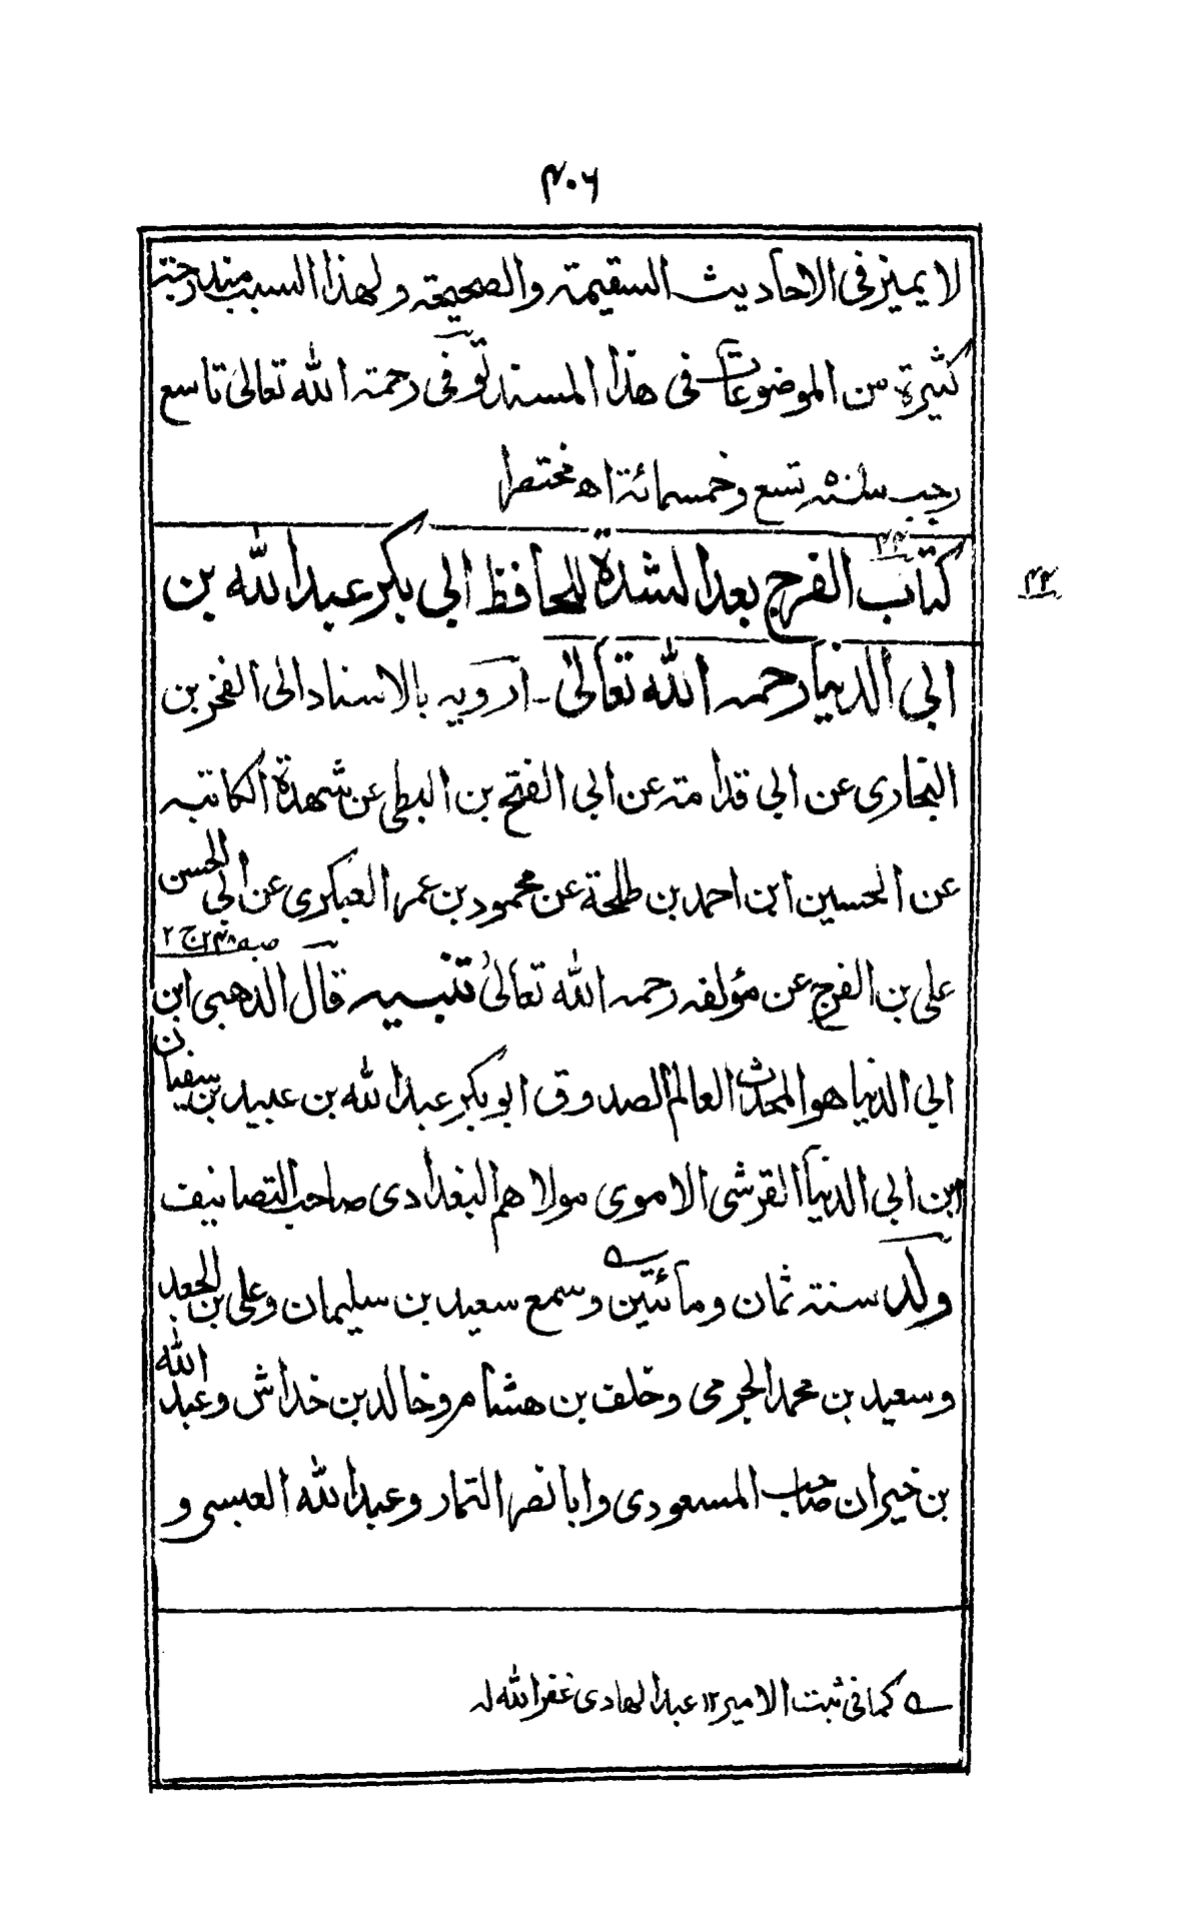 ۴۰۶
لا يميز فى الاحاديث السقيمة والصحيحة ولهذا السبب مندرجة
كثيرة من الموضوعات فى هذا المسند توفى رحمة الله تعالى تاسع
رجب سنة ٥٠٩ تسع وخمسمائة اھ مختصرا
كتاب الفرج بعد الشدة للحافظ ابى بكر عبد الله بن
۴۴
ابى الدنيا رحمه الله تعالى ـ ارويه بالاسناد الى الفخر بن
البخارى عن ابى قدامة عن ابى الفتح بن البطى عن شهدة الكاتبه
عن الحسين ابن احمد بن طلحة عن محمود بن عمر العبكرى عن ابى الحسن
على بن الفرج عن مؤلفه رحمه الله تعالى تنبيه قال الذهبى ابن
ابى الدنيا هو المحدث العالم الصدوق ابو بكر عبد الله بن عبيد بن سفيان
ابن ابى الدنيا القرشى الاموى مولاهم البغدادى صاحب التصانيف
ولد سنة ثمان ومائتين وسمع سعيد بن سليمان وعلى بن الجعد
وسعيد بن محمد الجرمى وخلف بن هشام وخالد بن خداش وعبد الله
بن خيران صاحب المسعودى وابا نصر التمار وعبد الله العبسى و
ے كما فى ثبت الامير ١٢ عبد الهادى غفر الله له